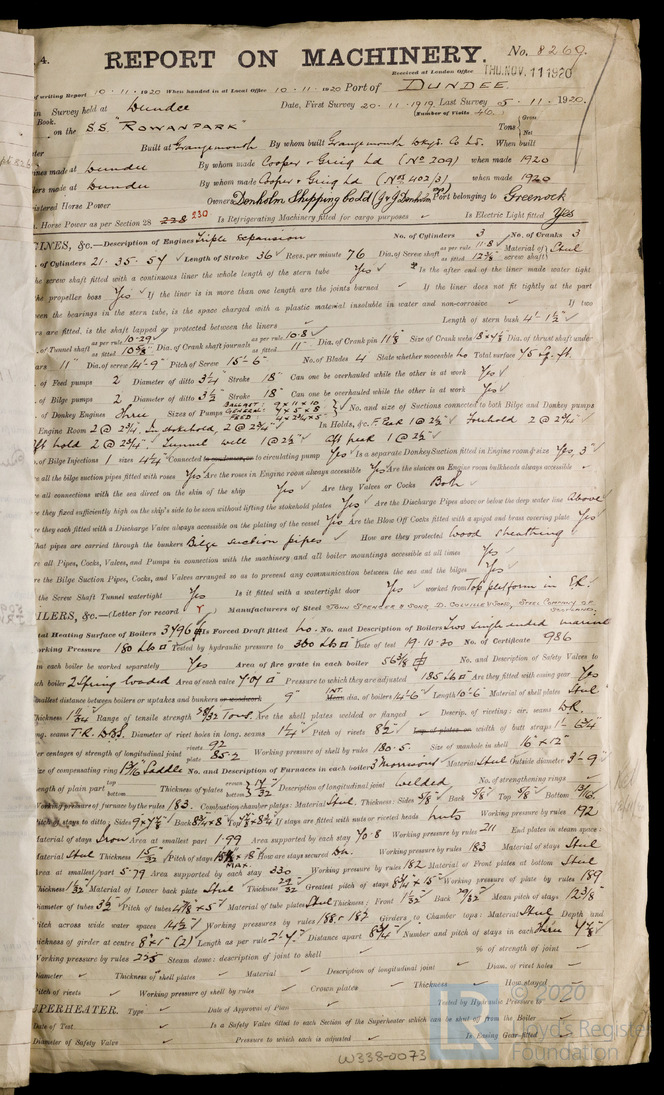 4. REPORT ON MACHINERY. No. 8269.
Received at London Office THU. NOV. 11 1920
of writing Report 10.11.1920 When handed in at Local Office 10.11.1920 Port of DUNDEE
in Survey held at Dundee Date, First Survey 20.11.1919 Last Survey 5.11.1920.
Book. (Number of Visits 46)
on the S.S. "ROWANPARK" Tons Gross Net
Built at Grangemouth By whom built Grangemouth Dkyd. Co Ld. When built
ines made at Dundee By whom made Cooper & Greig Ld (No 209) when made 1920
lers made at Dundee By whom made Cooper & Greig Ld (Nos 402/3) when made 1920
istered Horse Power Owners Denholm Shipping Co Ld (J & J Denholm Port belonging to Greenock
. Horse Power as per Section 28 228 230 Is Refrigerating Machinery fitted for cargo purposes Is Electric Light fitted Yes
GINES, &c.—Description of Engines Triple Expansion No. of Cylinders 3 No. of Cranks 3
. of Cylinders 21. 35. 57 Length of Stroke 36 Revs. per minute 76 Dia. of Screw shaft as per rule 11.8 as fitted 12 3/8 Material of screw shaft Steel
he screw shaft fitted with a continuous liner the whole length of the stern tube Yes Is the after end of the liner made water tight
the propeller boss Yes If the liner is in more than one length are the joints burned If the liner does not fit tightly at the part
ween the bearings in the stern tube, is the space charged with a plastic material insoluble in water and non-corrosive If two
rs are fitted, is the shaft lapped or protected between the liners Length of stern bush 4'-1½"
of Tunnel shaft as per rule 10.29 as fitted 10 5/8" Dia. of Crank shaft journals as per rule 10.8 as fitted 11" Dia. of Crank pin 11 1/8 Size of Crank webs Dia. of thrust shaft under
ars 11" Dia. of screw 14'-9" Pitch of Screw 15'-6" No. of Blades 4 State whether moveable No Total surface 75 sq. ft.
of Feed pumps 2 Diameter of ditto 3¼" Stroke 18" Can one be overhauled while the other is at work Yes
of Bilge pumps 2 Diameter of ditto 3½" Stroke 18" Can one be overhauled while the other is at work Yes
of Donkey Engines Three Sizes of Pumps BALLAST: 9 x 11 x 10 GENERAL: 7 x 5 x 8 FEED: No. and size of Suctions connected to both Bilge and Donkey pumps
Engine Room 2 @ 2¾", In Stokehold, 2 @ 2¾" In Holds, &c. F. Peak 1 @ 2½" Forehold 2 @ 2¾"
Aft hold 2 @ 2¾" Tunnel well 1 @ 2½" Aft peak 1 @ 2½"
. of Bilge Injections 1 sizes 4¼" Connected to condenser, or to circulating pump Yes Is a separate Donkey Suction fitted in Engine room & size Yes, 3"
re all the bilge suction pipes fitted with roses Yes Are the roses in Engine room always accessible Yes Are the sluices on Engine room bulkheads always accessible
re all connections with the sea direct on the skin of the ship Yes Are they Valves or Cocks Both
re they fixed sufficiently high on the ship's side to be seen without lifting the stokehold plates Yes Are the Discharge Pipes above or below the deep water line Above
re they each fitted with a Discharge Valve always accessible on the plating of the vessel Yes Are the Blow Off Cocks fitted with a spigot and brass covering plate Yes
hat pipes are carried through the bunkers Bilge suction pipes How are they protected Wood sheathing
re all Pipes, Cocks, Valves, and Pumps in connection with the machinery and all boiler mountings accessible at all times Yes
re the Bilge Suction Pipes, Cocks, and Valves arranged so as to prevent any communication between the sea and the bilges Yes
the Screw Shaft Tunnel watertight Yes Is it fitted with a watertight door Yes worked from Top platform in E.R.
OILERS, &c.—(Letter for record Y Manufacturers of Steel JOHN SPENCER & SONS, D. COLVILLE & SONS, STEEL COMPANY OF SCOTLAND.
tal Heating Surface of Boilers 3496 Is Forced Draft fitted No. No. and Description of Boilers Two single ended marine
orking Pressure 180 Lbs Tested by hydraulic pressure to 360 Lbs Date of test 19.10.20 No. of Certificate 986
an each boiler be worked separately Yes Area of fire grate in each boiler 56 3/8 No. and Description of Safety Valves to
each boiler 2 Spring loaded Area of each valve 7.07 Pressure to which they are adjusted 185 Lbs Are they fitted with easing gear Yes
mallest distance between boilers or uptakes and bunkers or woodwork 9" INT. Mean dia. of boilers 14'-6" Length 10'-6" Material of shell plates Steel
Thickness Range of tensile strength 28/32 Tons. Are the shell plates welded or flanged Descrip. of riveting: cir. seams D.R.
ng. seams T.R. D.B.S. Diameter of rivet holes in long. seams 1¼" Pitch of rivets 8½" Lap of plates or width of butt straps 1'-6¾"
er centages of strength of longitudinal joint rivets 92 plate 85.2 Working pressure of shell by rules 180.5 Size of manhole in shell 16" x 12"
ize of compensating ring Saddle No. and Description of Furnaces in each boiler 3 Morisons Material Steel Outside diameter 3'-9"
ength of plain part top bottom Thickness of plates crown bottom 17/32 Description of longitudinal joint welded No. of strengthening rings
Working pressure of furnace by the rules 183. Combustion chamber plates: Material Steel. Thickness: Sides 5/8" Back 5/8" Top 5/8" Bottom 13/16
Pitch of stays to ditto: Sides Back Top If stays are fitted with nuts or riveted heads nuts Working pressure by rules 192
Material of stays Iron Area at smallest part 1.99 Area supported by each stay 70.8 Working pressure by rules 211 End plates in steam space:
Material Steel Thickness 15/32 Pitch of stays MAX. How are stays secured D.N. Working pressure by rules 183 Material of stays Steel
Area at smallest part 5.79 Area supported by each stay 330 Working pressure by rules 182 Material of Front plates at bottom Steel
Thickness Material of Lower back plate Steel Thickness 29/32 Greatest pitch of stays Working pressure of plate by rules 189
Diameter of tubes 3½ Pitch of tubes 4 7/8 x 5" Material of tube plates Steel Thickness: Front Back Mean pitch of stays 12 3/8"
Pitch across wide water spaces 14½" Working pressures by rules 188 & 182 Girders to Chamber tops: Material Steel Depth and
hickness of girder at centre 8" x 1" (2) Length as per rule 2'-7" Distance apart 8¾" Number and pitch of stays in each three
Working pressure by rules 225 Steam dome: description of joint to shell % of strength of joint
Diameter Thickness of shell plates Material Description of longitudinal joint Diam. of rivet holes
Pitch of rivets Working pressure of shell by rules Crown plates Thickness How stayed
UPERHEATER. Type Date of Approval of Plan Tested by Hydraulic Pressure to
Date of Test Is a Safety Valve fitted to each Section of the Superheater which can be shut off from the Boiler
Diameter of Safety Valve Pressure to which each is adjusted Is Easing Gear fitted
W338-0073
© 2020
Lloyd's Register
Foundation